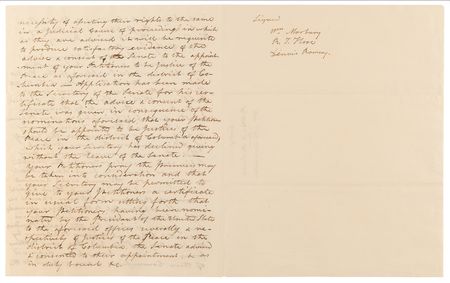 necessity of asserting their rights to the same
in a judicial Court of proceeding in which
as they are advised it will be requisite
to produce satisfactory evidence of the
advice & consent of the Senate to the appoint
ment of your Petitioners to be Justices of the
Peace as aforesaid in the district of Co-
lumbia — Application has been made
to the Secretary of the Senate for his cer-
tificate that the advice & consent of the
Senate was given in consequence of the
nomination aforesaid that your petitioners
should be appointed to be Justices of the
Peace in the district of Columbia aforesaid
which your Secretary has declined giving
without the leave of the Senate —
Your Petitioners pray the premises may
be taken into consideration and that
your Secretary may be permitted to
give to your petitioners a certificate
in usual form setting forth that
your petitioners having been nomi-
nated by the President of the United States
to the aforesaid offices severally & re-
spectively of Justices of the Peace in the
district of Columbia the Senate advised
& consented to their appointment, & as
in duty bound &c.
Signed
Wm Marbury
R. T. Hooe
Dennis Ramsay